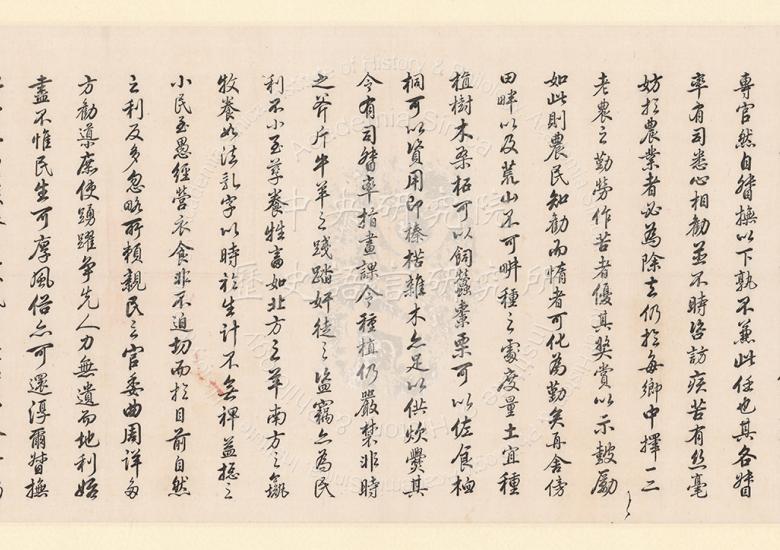 專官然自督撫以下孰不兼此任也其各督
率有司悉心相勸並不時咨訪疾苦有絲毫
妨於農業者必為除去仍於每鄉中擇一二
老農之勤勞作苦者優其奬賞以示鼓勵
如此則農民知勸而惰者可化為勤矣再舍傍
田畔以及荒山不可畊種之處度量土宜種
植樹木桑柘可以飼蠶棗栗可以佐食桕
桐可以資用即榛楛雜木亦足以供炊爨其
令有司督率指畫課令種植仍嚴禁非時
之斧斤牛羊之踐踏奸徒之盜竊亦為民
利不小至孳養牲畜如北方之羊南方之彘
牧養如法乳字以時於生計不無裨益捴之
小民至愚經營衣食非不迫切而於目前自然
之利反多忽略所賴親民之官委曲周詳多
方勸導庶使踴躍爭先人力無遺而地利始
盡不惟民生可厚風俗亦可還淳爾督撫
中央研究院
歷史語言研究所